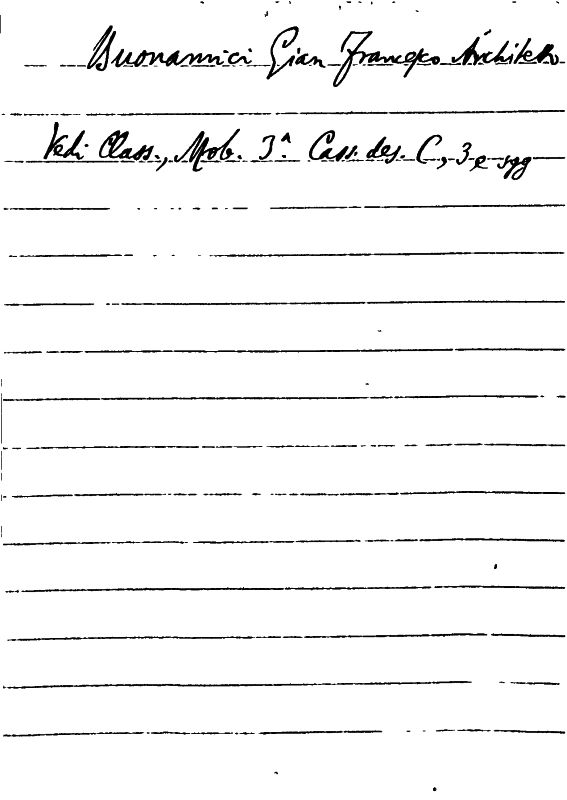 Buonamici Gian Francesco Architetto
Vedi Class., Mob. 3ª. Cass. des. C, 3 e sgg